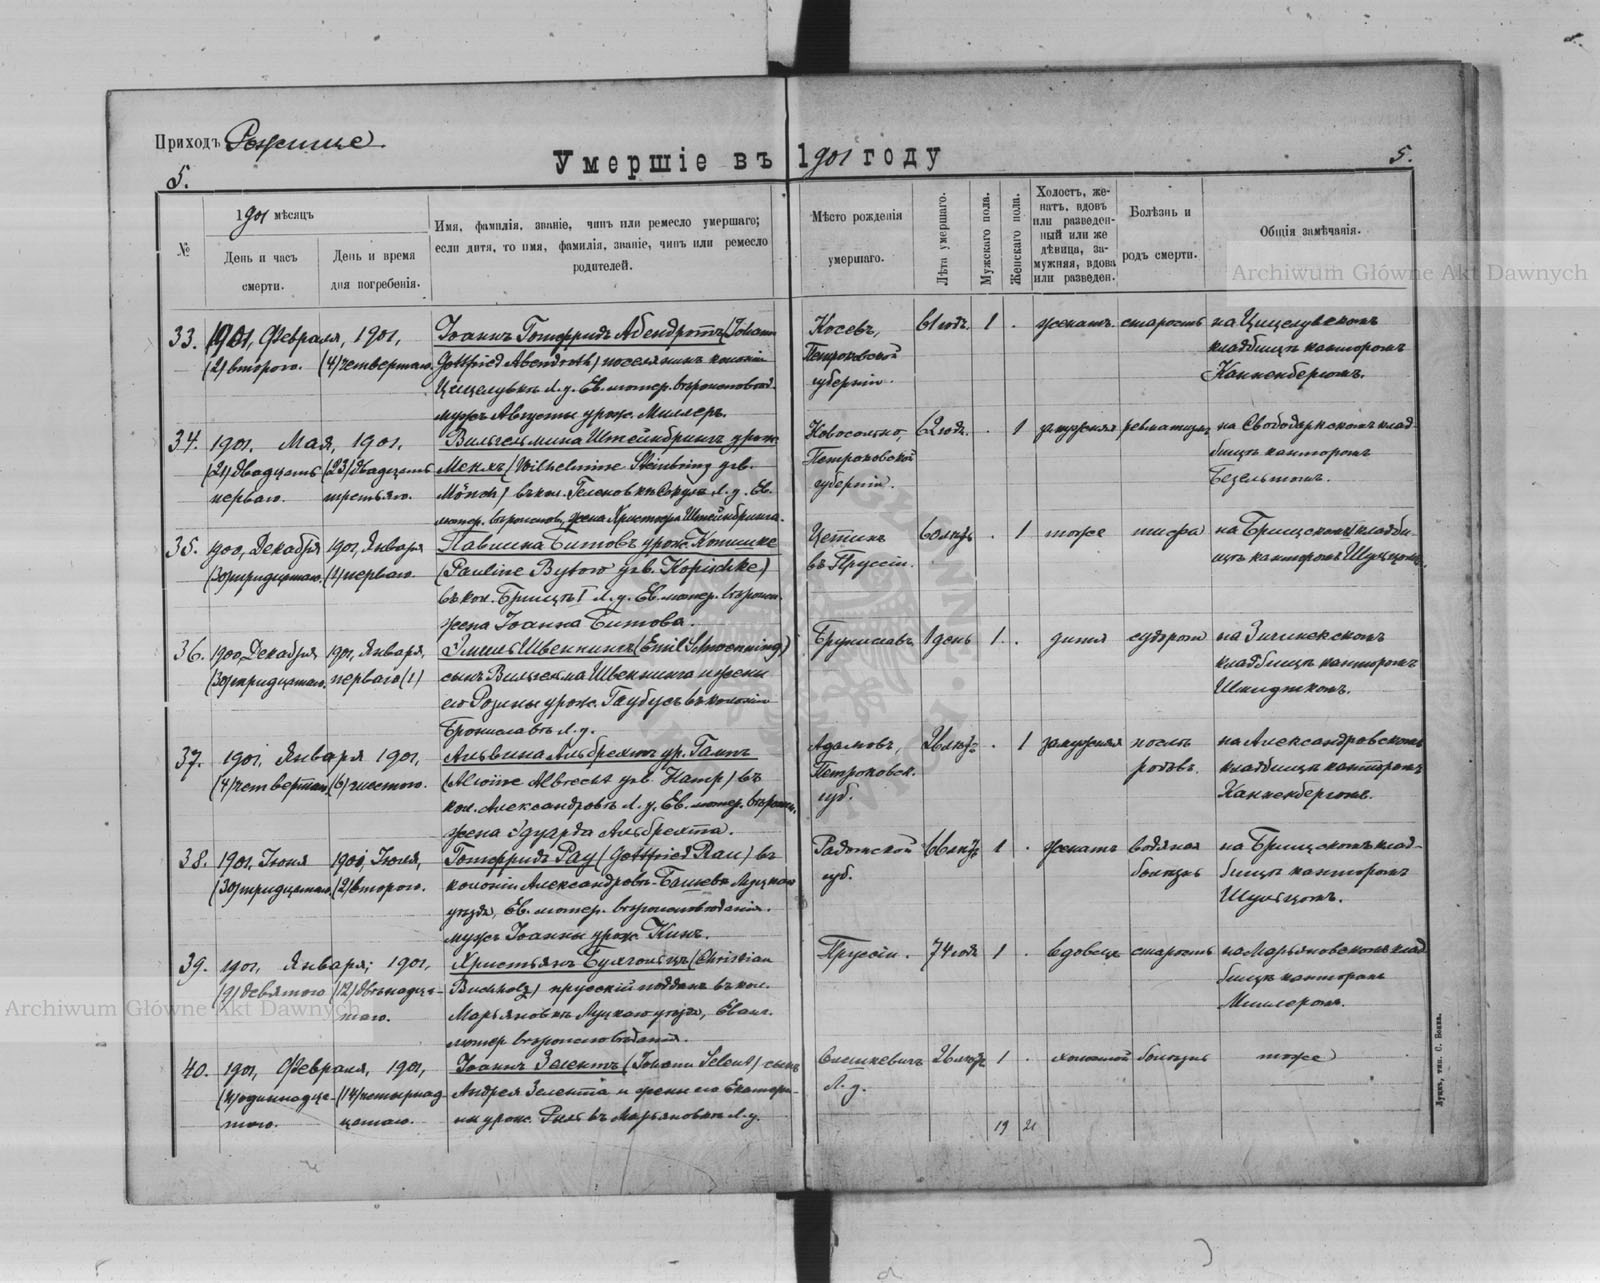 Приходъ Рожище.
Умершіе въ 1901 году
5.
5.
№
1901 мѣсяцъ
День и часъ
смерти.
День и время
дня погребенія.
Имя, фамилія, званіе, чинъ или ремесло умершаго;
если дитя, то имя, фамилія, званіе, чинъ или ремесло
родителей.
Мѣсто рожденія
умершаго.
Лѣта умершаго.
Мужскаго пола.
Женскаго пола.
Холостъ, же-
натъ, вдовъ
или разведен-
ный или же
дѣвица, за-
мужняя, вдова
или разведен.
Болѣзнь и
родъ смерти.
Общія замѣчанія.
Archiwum Główne Akt Dawnych
33. 1901, Февраля, 1901, Іоаннъ Готфридъ Абендротъ (Johann Косевъ, 61 годъ. 1 . женатъ. старость на Цицелувскомъ
(2) второго. (4) четвертаго. Gottfried Abendroth) поселянинъ колоніи Петроковской кладбищѣ канторомъ
Цецелувкѣ Л. у. Ев. лютер. вѣроисповѣд. губерніи. Канненбергомъ.
мужъ Августы урож. Миллеръ.
34. 1901, Мая, 1901, Вильгельмина Штейнбрингъ урож. 62 годъ. . 1 замужняя ревматизм на Свободарскомъ клад-
(21) двадцать (23) двадцать Менхъ (Wilhelmine Steinbring geb. Петроковской бищѣ канторомъ
перваго. третьяго. Mönch) въ кол. Л. у. Ев. губерніи.
лютер. вѣроисповѣд. жена Штейнбринга.
35. 1900, Декабря 1901, Января Павлина Битовъ урож. Копишке 60 лѣтъ . 1 тоже тифъ на Брищскомъ кладби-
(30) тридцатаго. (1) перваго. (Pauline Bytow geb. Kopischke) въ Пруссіи. щѣ канторомъ Шульцомъ.
въ кол. Брищѣ I Л. у. Ев. лютер. вѣроисп.
жена Іоанна Битова.
36. 1900, Декабря 1901, Января, Эмиль Швеннингъ (Emil Schwenning) Брониславъ 1 день 1 . дитя судороги на
(30) тридцатаго. перваго (1) сынъ Вильгельма Швеннинга и жены кладбищѣ канторомъ
его Розины урож. Таубусъ въ колоніи Шмидткомъ.
Брониславъ Л. у.
37. 1901, Января 1901, Альвина Альбрехтъ ур. Гампъ Адамовъ, 26 лѣтъ . 1 замужняя послѣ на Александровскомъ
(4) четвертаго (6) шестого. (Alwine Albrecht geb. Hamp) въ Петроковск. родовъ. кладбищѣ канторомъ
кол. Александровъ Л. у. Ев. лютер. вѣроисп. губ. Канненбергомъ.
жена Эдуарда Альбрехта.
38. 1901, Іюня 1901, Іюля, Готфридъ Рау (Gottfried Rau) въ Радомской 66 лѣтъ 1 . женатъ водяная на Брищскомъ клад-
(30) тридцатаго (2) второго. колоніи Александровъ- Луцкаго губ. болѣзнь бищѣ канторомъ
уѣзда, Ев. лютер. вѣроисповѣданія. Шульцомъ.
мужъ Іоанны урож. Кинъ.
39. 1901, Января, 1901, Христьянъ Бухгольцъ (Christian Пруссіи. 74 года 1 . вдовецъ старость на Марьяновскомъ клад-
(9) девятаго (12) двѣнадца- Buchholz) прусскій подданъ въ кол. бищѣ канторомъ
таго. Марьяновкѣ Луцкаго уѣзда, Еванг. Миллеромъ.
лютер вѣроисповѣданія.
Archiwum Główne Akt Dawnych
40. 1901, Февраля, 1901, Іоаннъ Зелентъ (Johann Selent) сынъ 26 лѣтъ 1 . холостой болѣзнь тоже
одиннадца- (14) четырнад- Андрея Зелента и жены его Екатери- Л. у.
таго. цатаго. ны урож. въ Марьяновкѣ Л. у.
19 21
Луцкъ, тип. С. Бокка.